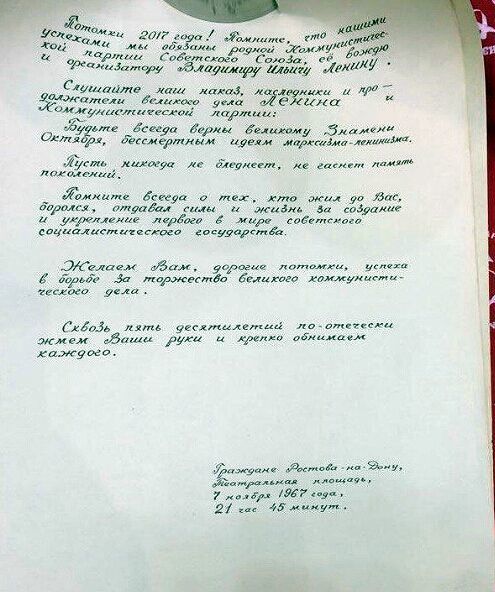 Потомки 2017 года! Помните, что нашими
успехами мы обязаны родной Коммунистичес-
кой партии Советского Союза, её вождю
и организатору Владимиру Ильичу Ленину.
Слушайте наш наказ, наследники и про-
должатели великого дела ЛЕНИНА и
Коммунистической партии:
Будьте всегда верны великому Знамени
Октября, бессмертным идеям марксизма-ленинизма.
Пусть никогда не бледнеет, не гаснет память
поколений.
Помните всегда о тех, кто жил до Вас,
боролся, отдавал силы и жизнь за создание
и укрепление первого в мире советского
социалистического государства.
Желаем Вам, дорогие потомки, успеха
в борьбе за торжество великого коммунисти-
ческого дела.
Сквозь пять десятилетий по-отечески
жмем Ваши руки и крепко обнимаем
каждого.
Граждане Ростова-на-Дону,
Театральная площадь,
7 ноября 1967 года,
21 час 45 минут.